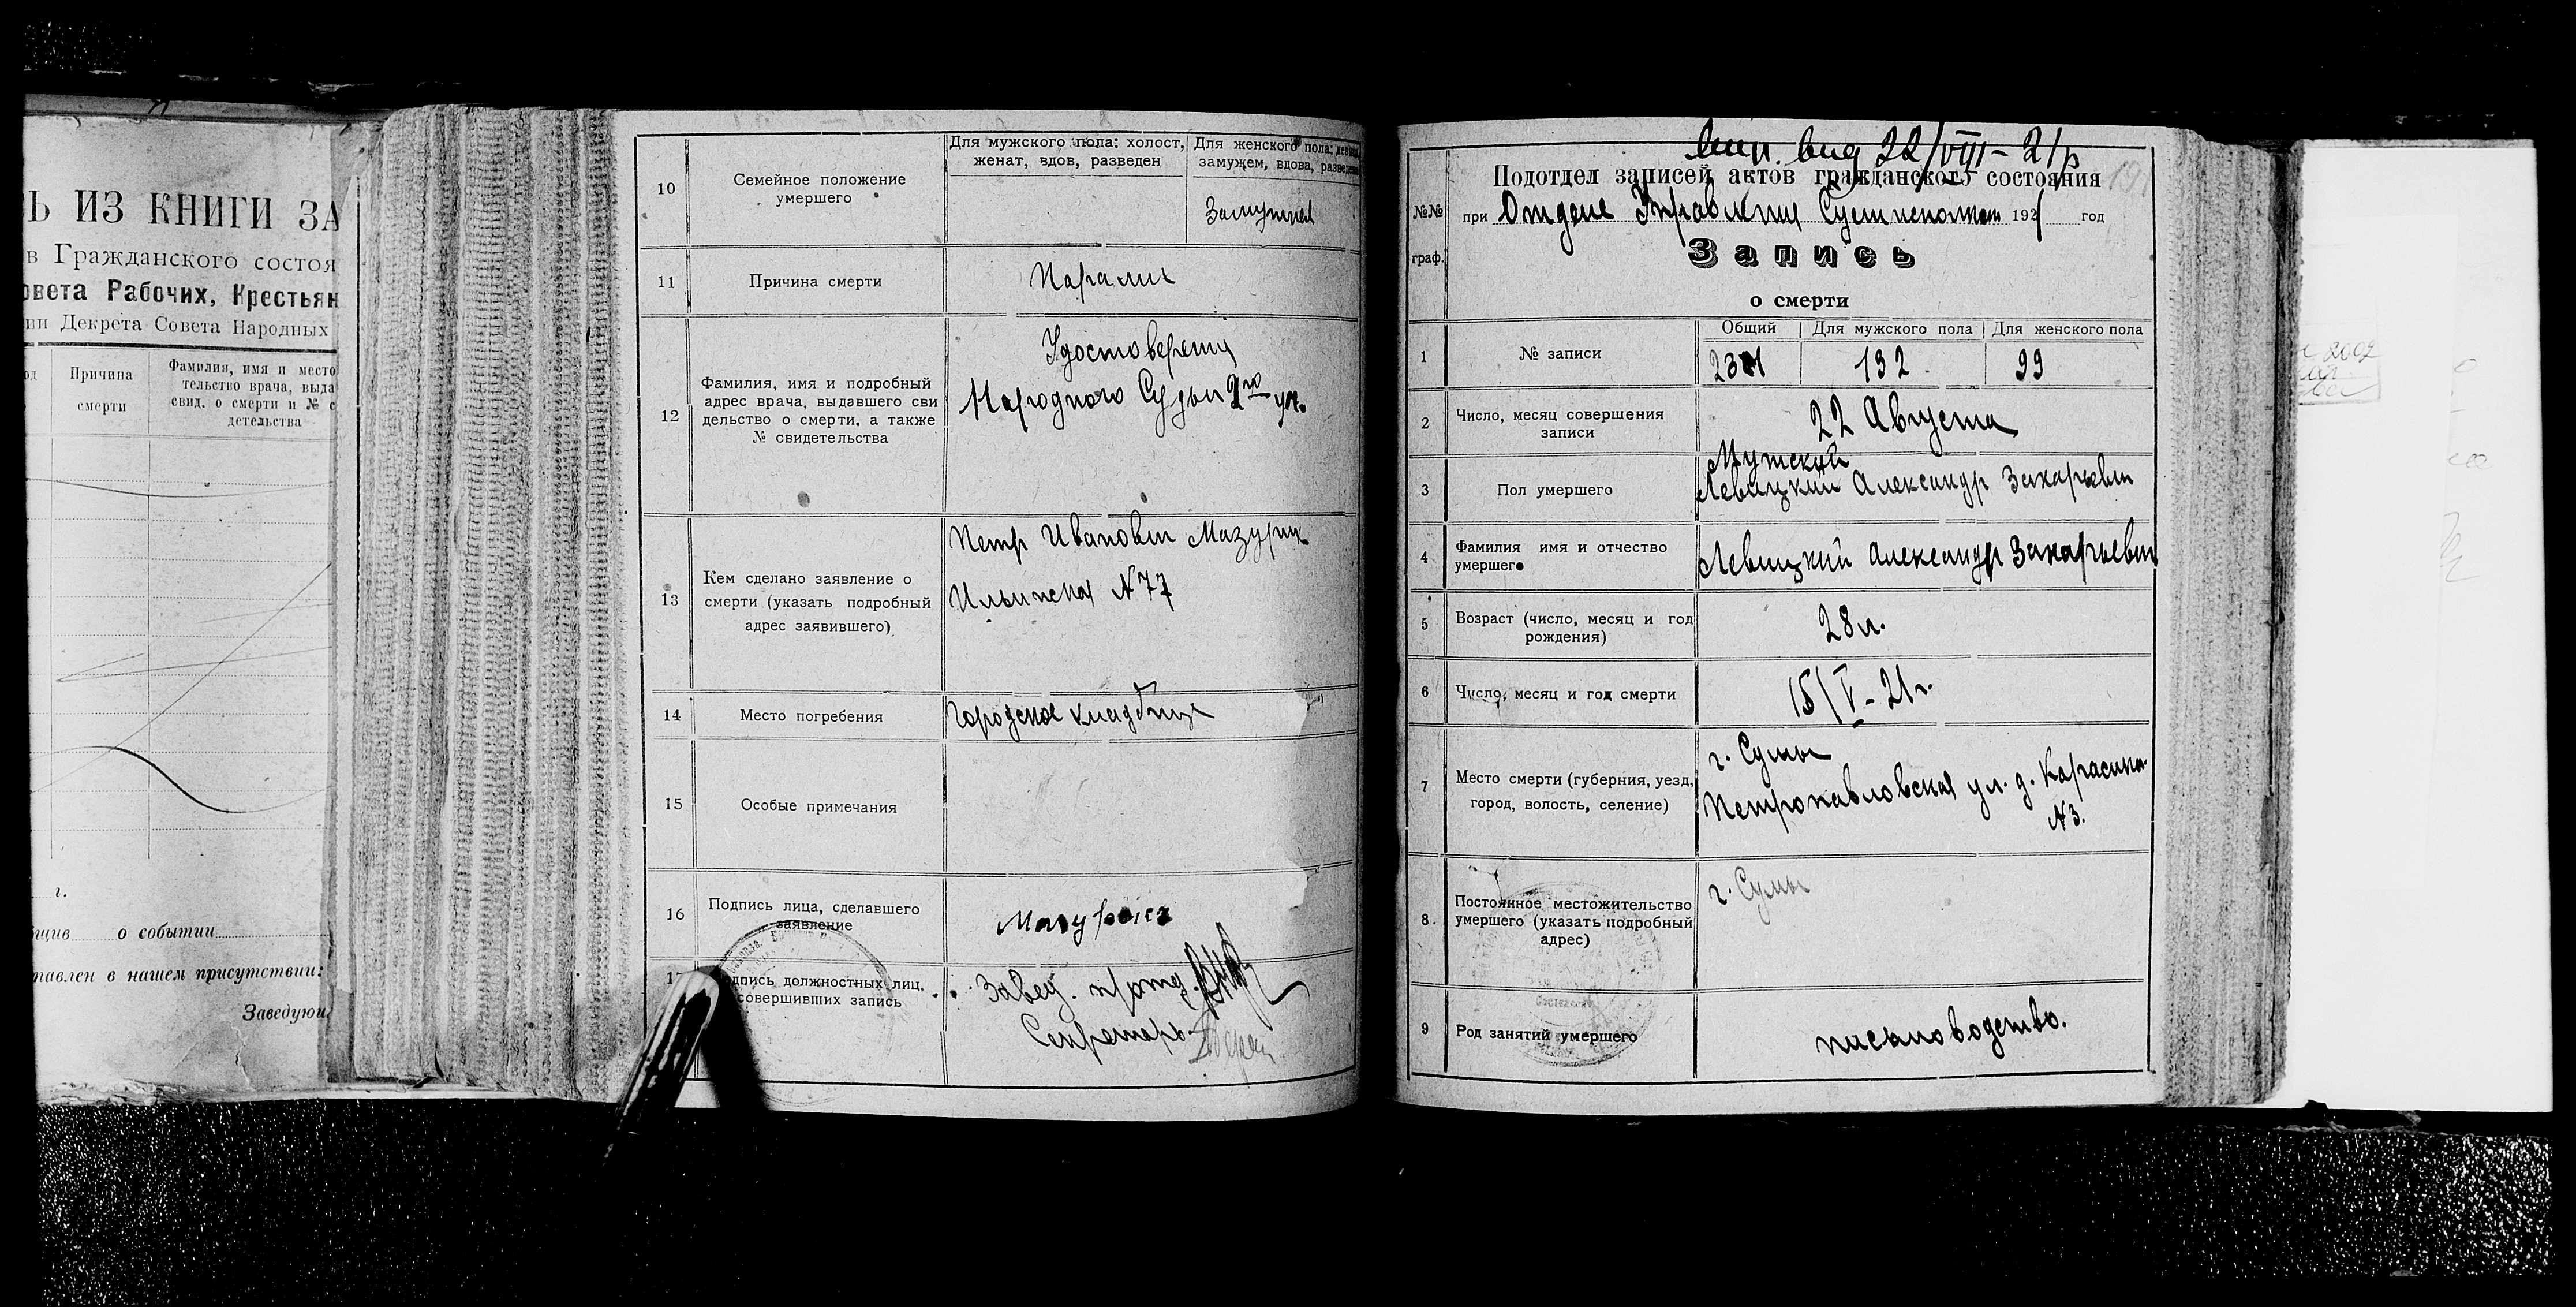 Ь ИЗ КНИГИ ЗА
в Гражданского состоя
овета Рабочих, Крестьян
ии Декрета Совета Народных
Причина
смерти
Фамилия, имя и место
тельство врача, выда
свид. о смерти и № с
детельства
г.
бщив о событии
тавлен в нашем присутствии:
Заведующ
10
Семейное положение
умершего
Для мужского пола: холост,
женат, вдов, разведен
Для женского пола: девица
замужем, вдова, разведена
Замужняя
11
Причина смерти
Паралич
12
Фамилия, имя и подробный
адрес врача, выдавшего сви
дельство о смерти, а также
№ свидетельства
Удостоверения
Народного Судьи 2го уч.
13
Кем сделано заявление о
смерти (указать подробный
адрес заявившего)
Петр Иванович Мазурик
Ильинская №77
14
Место погребения
Городское кладбище
15
Особые примечания
16
Подпись лица, сделавшего
заявление
Мазурик
17
одпись должностных лиц.
совершивших запись
Завед. п/отд.
Секретарь
вид 22/VIII-21
Подотдел записей актов гражданского состояния
№№
граф.
при Отделе Управления Сумисполком 1921 год
Запись
о смерти
1
№ записи
Общий
Для мужского пола
Для женского пола
231
132
99
2
Число, месяц совершения
записи
22 Августа
3
Пол умершего
Мужской
Левицкий Александр Захарьевич
4
Фамилия имя и отчество
умершего
Левицкий Александр Захарьевич
5
Возраст (число, месяц и год
рождения)
28 л.
6
Число, месяц и год смерти
15/V-21 г.
7
Место смерти (губерния, уезд,
город, волость, селение)
г. Сумы
Петропавловская ул. д. Карасика
№3.
8.
Постоянное местожительство
умершего (указать подробный
адрес)
г. Сумы
9
Род занятий умершего
письмоводство.